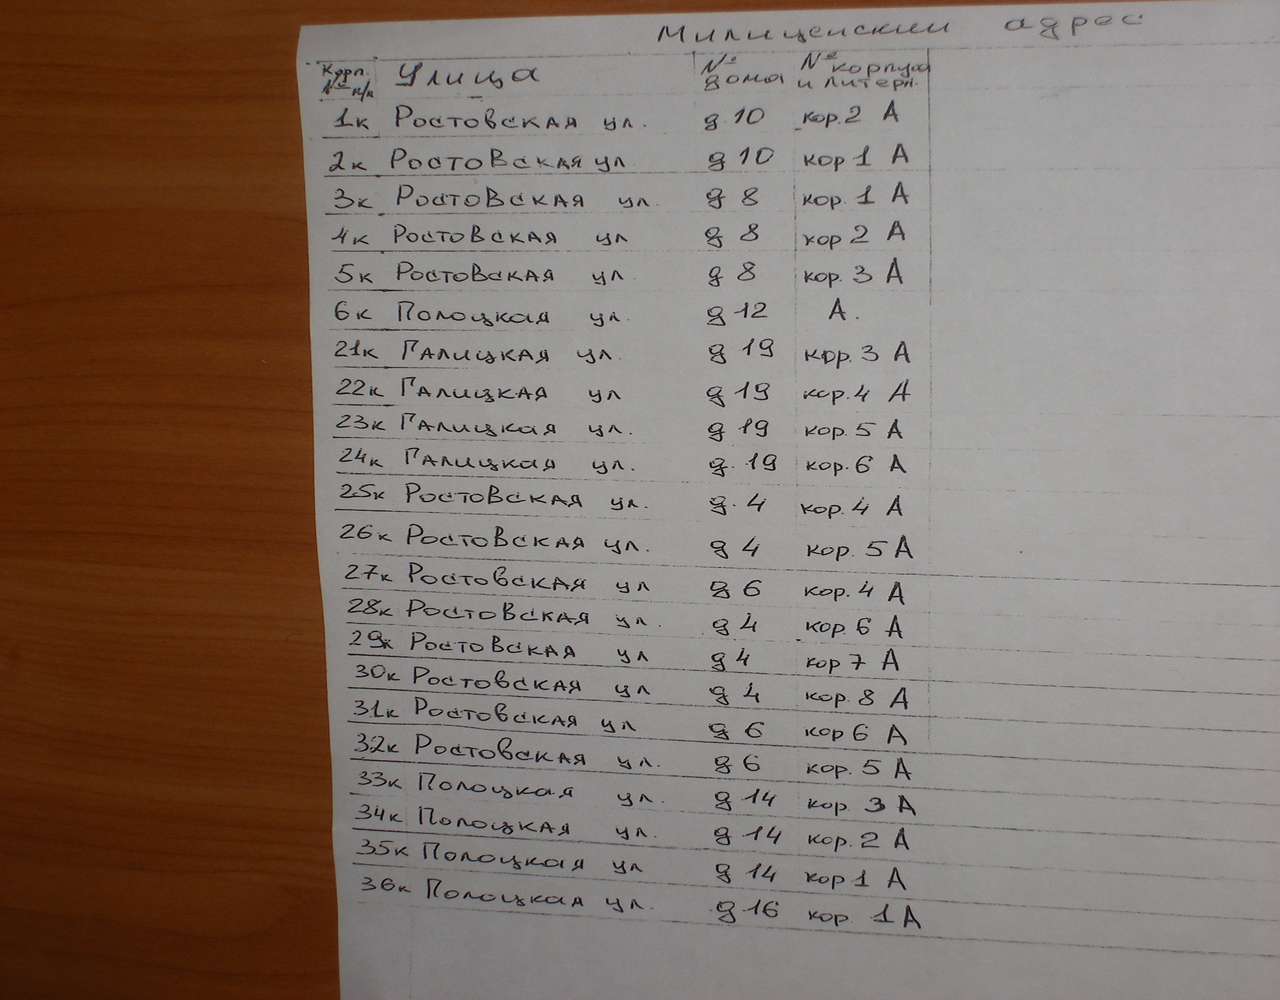 Милицейский адрес
Корп. № п/п Улица № дома № корпуса и литера.
1к Ростовская ул. д. 10 кор. 2 А
2к Ростовская ул д 10 кор 1 А
3к Ростовская ул. д 8 кор. 1 А
4к Ростовская ул д 8 кор 2 А
5к Ростовская ул. д 8 кор. 3 А
6к Полоцкая ул. д 12 А.
21к Галицкая ул. д 19 кор. 3 А
22к Галицкая ул д 19 кор. 4 А
23к Галицкая ул. д 19 кор. 5 А
24к Галицкая ул. д. 19 кор. 6 А
25к Ростовская ул. д. 4 кор. 4 А
26к Ростовская ул. д 4 кор. 5 А
27к Ростовская ул д 6 кор. 4 А
28к Ростовская ул. д 4 кор. 6 А
29к Ростовская ул д 4 кор 7 А
30к Ростовская ул д 4 кор. 8 А
31к Ростовская ул д 6 кор 6 А
32к Ростовская ул. д 6 кор. 5 А
33к Полоцкая ул. д 14 кор. 3 А
34к Полоцкая ул. д 14 кор. 2 А
35к Полоцкая ул д 14 кор 1 А
36к Полоцкая ул. д 16 кор. 1 А